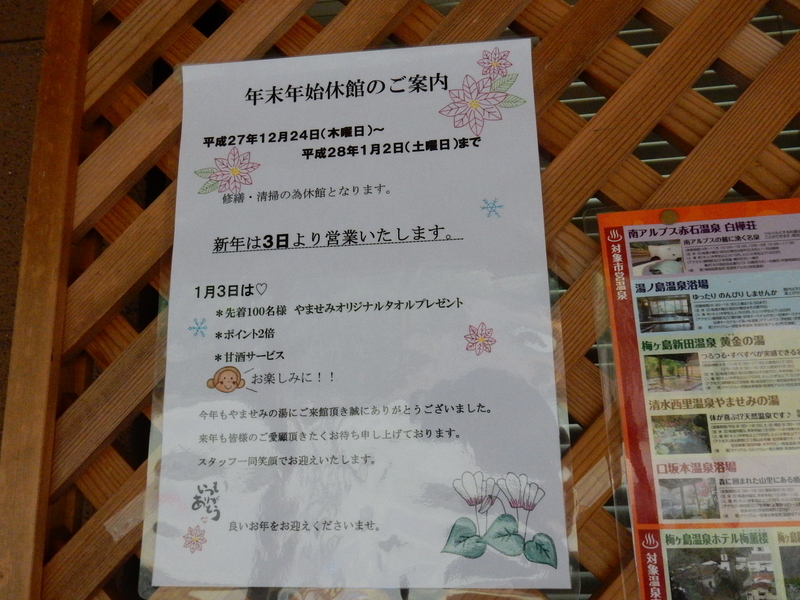 年末年始休館のご案内
平成27年12月24日(木曜日)～
平成28年1月2日(土曜日)まで
修繕・清掃の為休館となります。
新年は3日より営業いたします。
1月3日は♡
＊先着100名様 やませみオリジナルタオルプレゼント
＊ポイント2倍
＊甘酒サービス
お楽しみに！！
今年もやませみの湯にご来館頂き誠にありがとうございました。
来年も皆様のご愛顧頂きたくお待ち申し上げております。
スタッフ一同笑顔でお迎えいたします。
いつも
ありがとう
良いお年をお迎えくださいませ。
対象市営温泉
南アルプス赤石温泉 白樺荘
南アルプスの麓に湧く名泉
湯ノ島温泉浴場
ゆったり のんびり しませんか
梅ヶ島新田温泉 黄金の湯
つるつる・すべすべが実感できる
清水西里温泉やませみの湯
体が喜ぶ!?天然温泉です♪
口坂本温泉浴場
森に囲まれた山里にある
対象温泉
梅ヶ島温泉ホテル梅薫楼
梅ヶ島